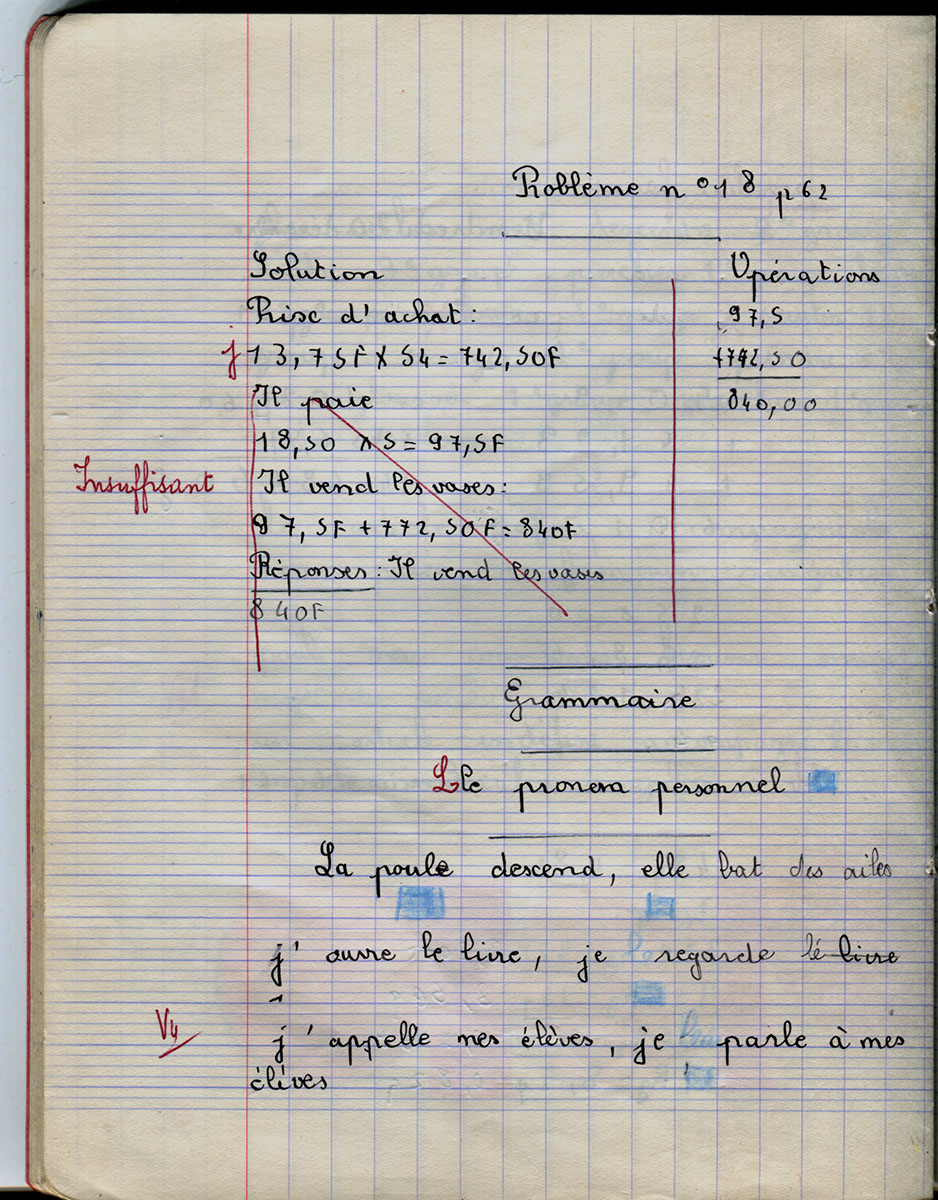 Problème n° 18 p 62
Solution
Opérations
Prisc d'achat :
j 13,75F X 54 = 742,50F
Il paie
18,50 X 5 = 97,5F
Insuffisant
Il vend les vases :
97,5F + 772,50F = 840F
Réponses : Il vend les vases
840F
97,5
+742,50
840,00
Grammaire
Lle pronom personnel
La poule descend, elle bat des ailes
j' ouvre le livre, je regarde le livre
Vu
j' appelle mes élèves, je parle à mes
élèves